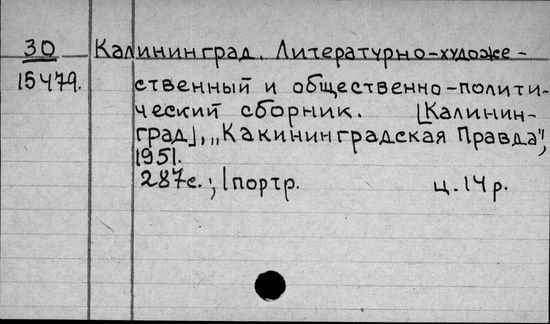 30 Калининград. Литературно-художе-
15479. ственный и общественно-полити-
ческий сборник. [Калинин-
град], „Какининградская Правда",
1951.
287с.; 1портр. ц. 14 р.